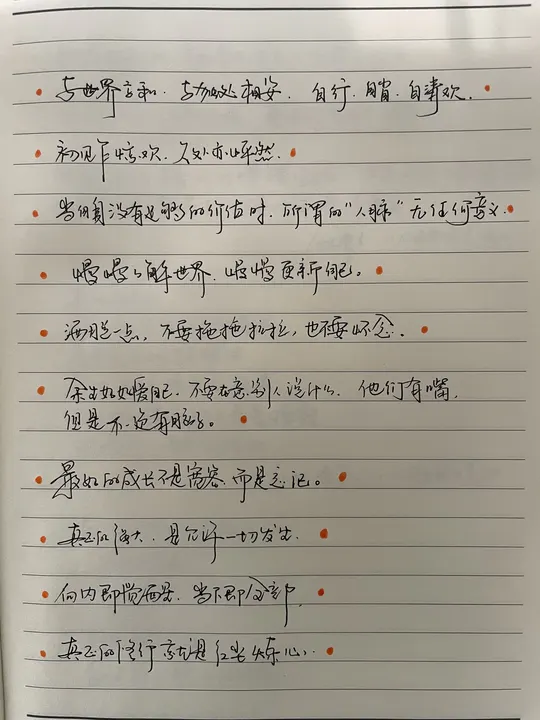 与世界言和.与万物处相安.自行.自省.自尋欢.
初见乍惊欢.久处亦怦然.
当自身没有足够的价值时.所谓的"人脉"无任何意义.
慢慢了解世界.慢慢更新自己。
洒脱一点,不要拖拖拉拉,也不要怀念.
余生好好爱自己.不要在意别人说什么.他们有嘴,
但是不一定有脑子。
最好的成长不是宽容.而是忘记。
真正的强大.是允许一切发生.
向内即觉而是.当下即全部.
真正的修行就是红尘炼心.